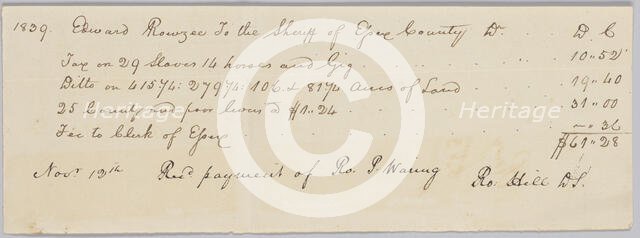 1839. Edward Rowzee To the Sheriff of Essex County Dr. D C
Tax on 29 Slaves 14 horses and Gig 10..52
Ditto on 415 3/4: 279 3/4: 106 & 81 3/4 Acres of Land 19..40
25 County and poor levies @ $1..24 31..00
Fee to Clerk of Essex ..36
$61..28
Novr 12th Recd payment of Ro. P. Waring
Ro. Hill D.S.
Heritage
Heritage
C